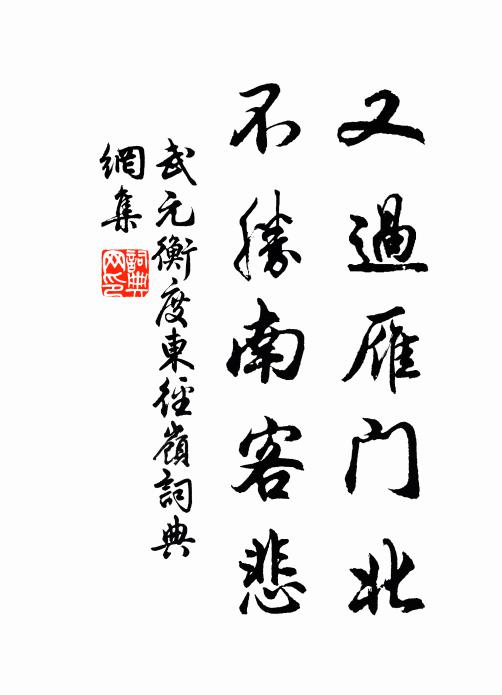 又過雁门北
不勝南客悲
武元衡度東徑嶺詞典
網集
詞典
网印